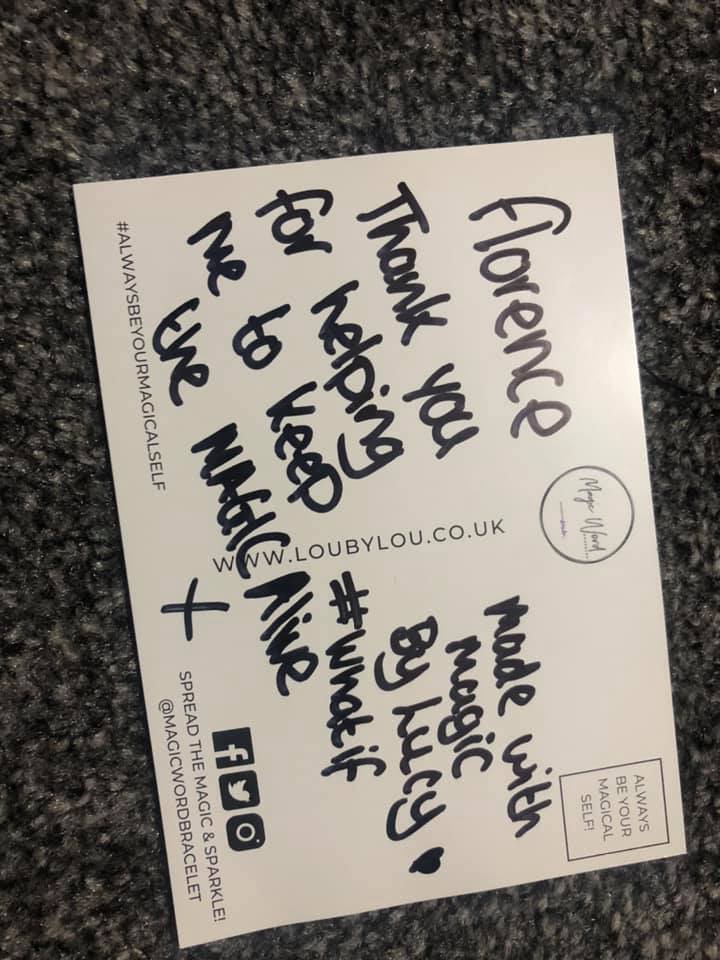 Florence
Thank you
for helping
me to keep
the MAGIC Alive
#whatif
+
made with
magic
By Lucy
Magic Word
WWW.LOUBYLOU.CO.UK
ALWAYS
BE YOUR
MAGICAL
SELF!
#ALWAYSBEYOURMAGICALSELF
SPREAD THE MAGIC & SPARKLE!
@MAGICWORDBRACELET